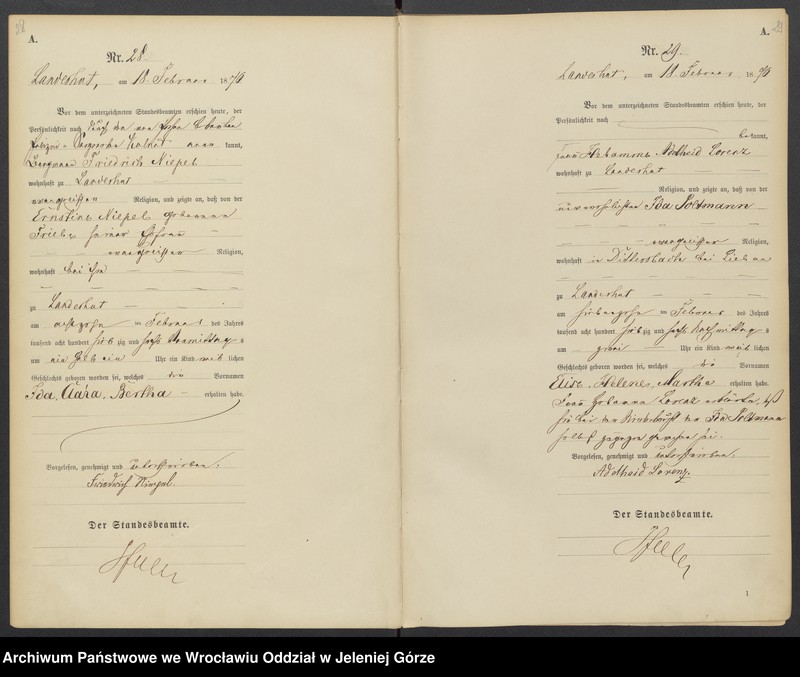 28
A.
Nr. 28
Landeshut, am 18 Februar 1876
Vor dem unterzeichneten Standesbeamten erschien heute, der
Persönlichkeit nach durch den
Kolbe kannt,
Bergmann Friedrich Niepel
wohnhaft zu Landeshut
evangelischen Religion, und zeigte an, daß von der
Ernstine Niepel geborenen
Friebe seiner Ehefrau
evangelischer Religion,
wohnhaft bei ihm
zu Landeshut
am achtzehn ten Februar des Jahres
tausend acht hundert siebzig und sechs Vormittags
um ein halb ein Uhr ein Kind weib lichen
Geschlechts geboren worden sei, welches die Vornamen
Ida, Clara, Bertha erhalten habe.
Vorgelesen, genehmigt und unterschrieben.
Friedrich Niepel.
Der Standesbeamte.
29
A.
Nr. 29.
Landeshut, am 18. Februar 1876
Vor dem unterzeichneten Standesbeamten erschien heute, der
Persönlichkeit nach
bekannt,
Frau Hebamme Adelheid Lorenz
wohnhaft zu Landeshut
Religion, und zeigte an, daß von der
unverehelichten Ida Poltmann
evangelischer Religion,
wohnhaft in Dittersbach bei Liebau
zu Landeshut
am siebenzehn ten Februar des Jahres
tausend acht hundert siebzig und sechs Nachmittags
um zwei Uhr ein Kind weib lichen
Geschlechts geboren worden sei, welches die Vornamen
Elise, Helene, Martha erhalten habe.
Frau Lorenz erklärte, daß
sie bei der Niederkunft der Ida Poltmann
selbst zugegen gewesen sei.
Vorgelesen, genehmigt und unterschrieben.
Adelheid Lorenz.
Der Standesbeamte.
1
Archiwum Państwowe we Wrocławiu Oddział w Jeleniej Górze